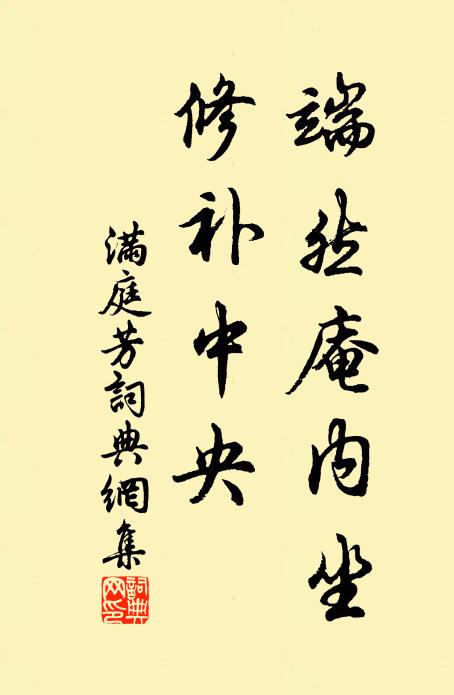 端然庵内坐
修补中央
满庭芳詞典網集
詞典
网印